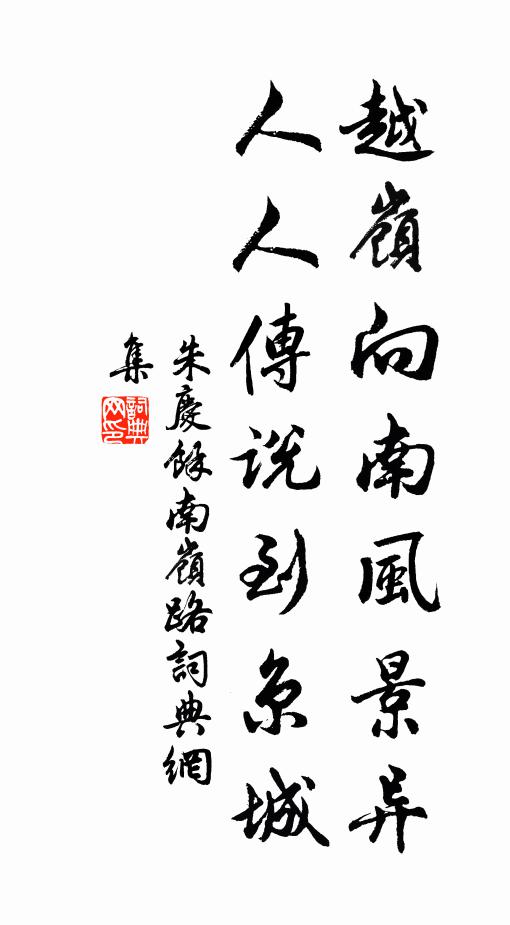 越嶺向南風景异
人人傳説到京城
朱慶餘南嶺路詞典網
集
詞典
网印